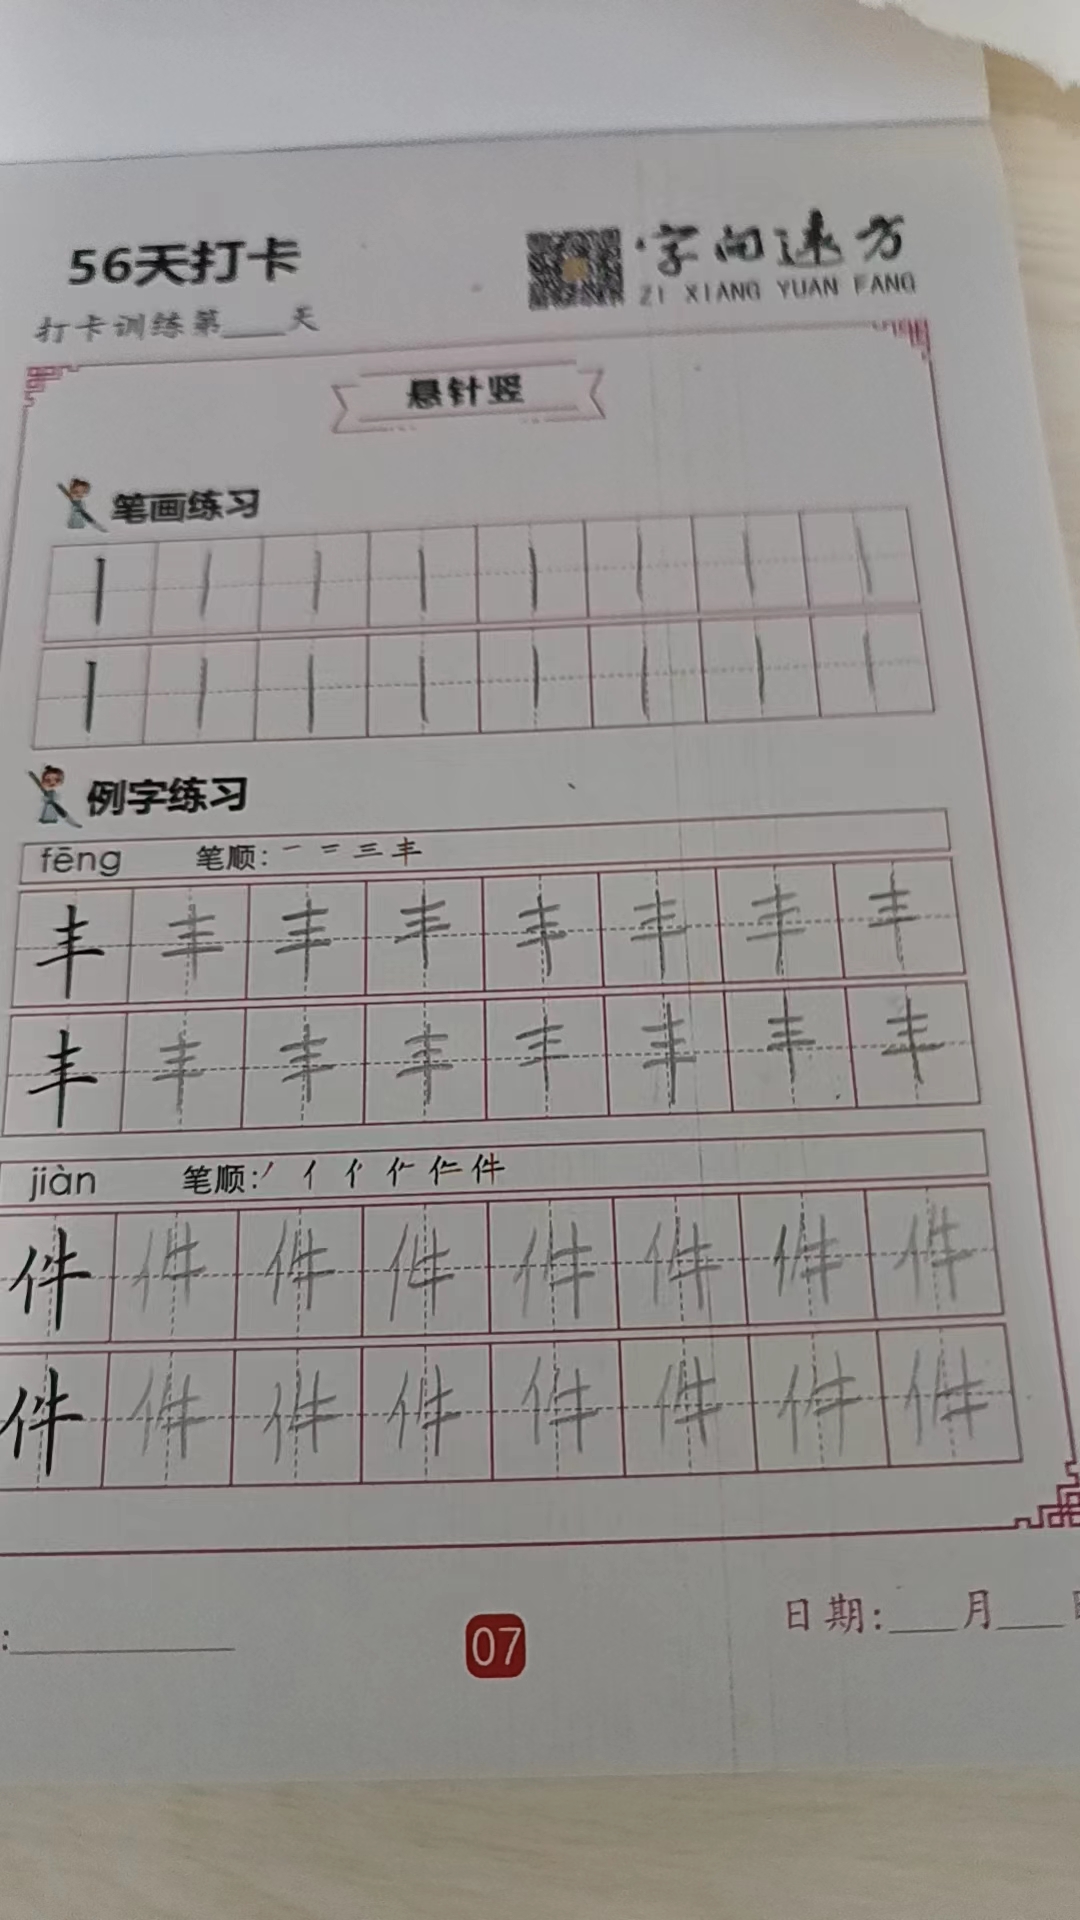 56天打卡
字向远方
ZI XIANG YUAN FANG
打卡训练第___天
悬针竖
笔画练习
丨 丨 丨 丨 丨 丨 丨 丨
丨 丨 丨 丨 丨 丨 丨 丨
例字练习
fēng 笔顺: 一 二 三 丰
丰 丰 丰 丰 丰 丰 丰 丰
丰 丰 丰 丰 丰 丰 丰 丰
jiàn 笔顺: 丿 亻 件
件 件 件 件 件 件 件 件
件 件 件 件 件 件 件 件
:___________
07
日期:___月___